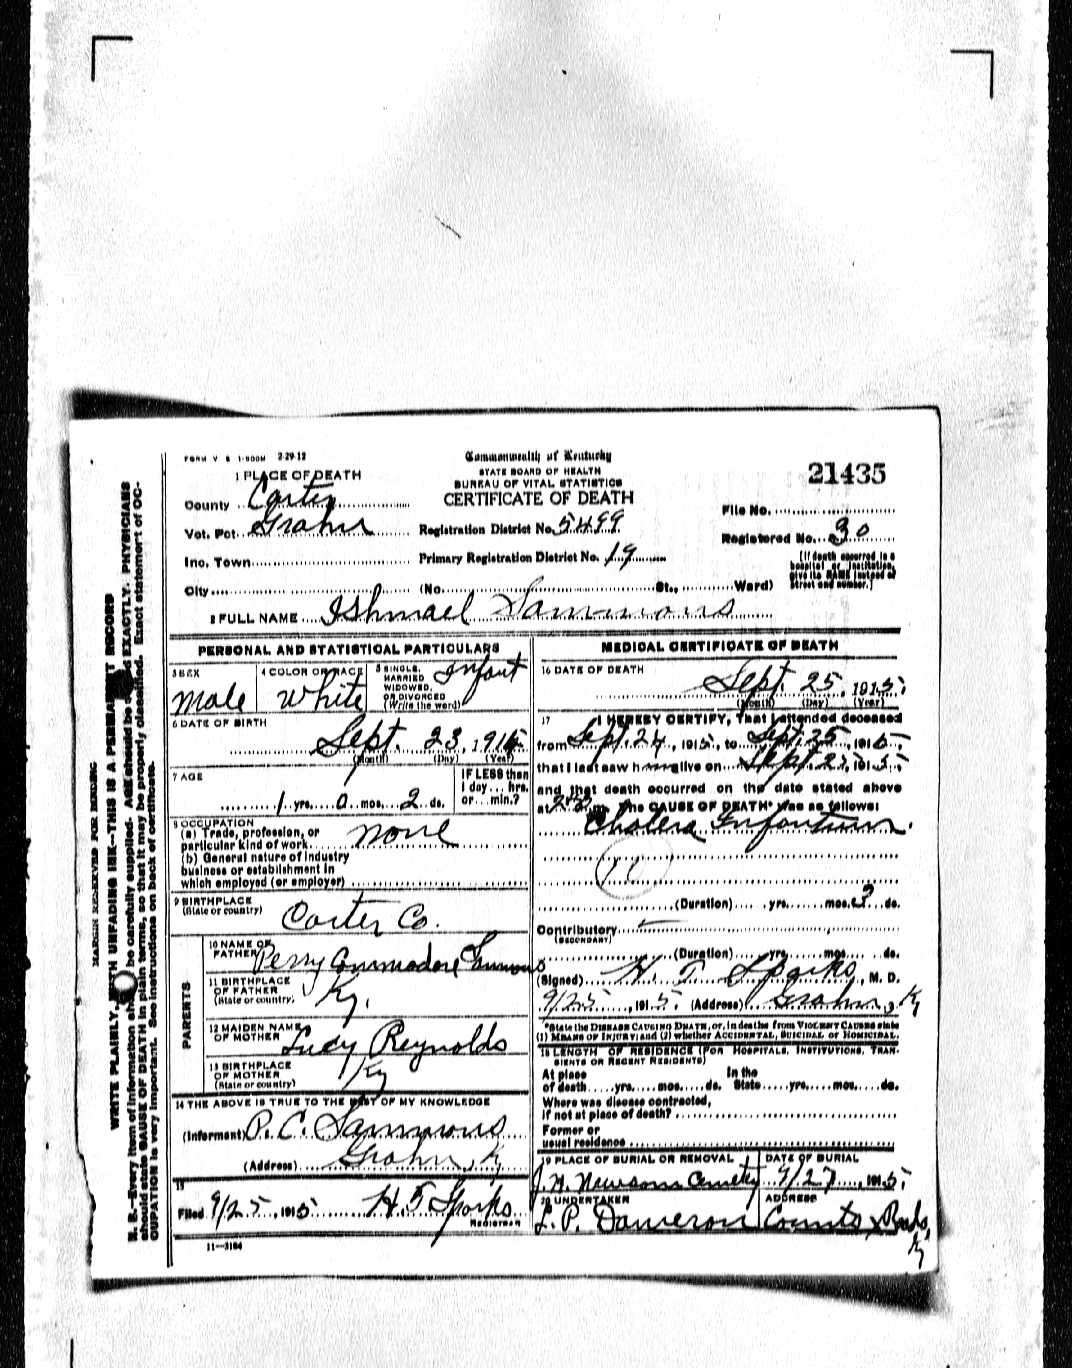 FORM V S 1-500M 2-29-12
Commonwealth of Kentucky
STATE BOARD OF HEALTH
BUREAU OF VITAL STATISTICS
CERTIFICATE OF DEATH
21435
1 PLACE OF DEATH
County Carter
Vot. Pct. Grahn
Inc. Town
City
Registration District No. 5499
Primary Registration District No. 19
(No. St., Ward)
File No.
Registered No. 30
(If death occurred in a hospital or institution, give its NAME instead of street and number.)
2 FULL NAME Ishmael Sammons
PERSONAL AND STATISTICAL PARTICULARS
3 SEX Male
4 COLOR OR RACE White
5 SINGLE, MARRIED WIDOWED, OR DIVORCED (Write the word) Infant
6 DATE OF BIRTH
Sept. 23, 191
(Month) (Day) (Year)
7 AGE
1 yrs. 0 mos. 2 ds.
IF LESS than 1 day hrs. or min.?
8 OCCUPATION
(a) Trade, profession, or particular kind of work None
(b) General nature of industry
business or establishment in
which employed (or employer)
9 BIRTHPLACE
(State or country) Carter Co.
PARENTS
10 NAME OF FATHER Perry Commodore Sammons
11 BIRTHPLACE OF FATHER (State or country) Ky.
12 MAIDEN NAME OF MOTHER Lucy Reynolds
13 BIRTHPLACE OF MOTHER (State or country) Ky
14 THE ABOVE IS TRUE TO THE BEST OF MY KNOWLEDGE
(Informant) P. C. Sammons
(Address) Grahn, Ky
15
Filed 9/25, 1915 H. T. Sparks
REGISTRAR
11-3184
MEDICAL CERTIFICATE OF DEATH
16 DATE OF DEATH
Sept. 25, 1915
(Month) (Day) (Year)
17 I HEREBY CERTIFY, That I attended deceased
from Sept. 24, 1915, to Sept. 25, 1915,
that I last saw him alive on Sept. 25, 1915,
and that death occurred on the date stated above
at m. The CAUSE OF DEATH* was as follows:
Cholera Infantum.
(Duration) yrs. mos. 3 ds.
Contributory
(SECONDARY)
(Duration) yrs. mos. ds.
(Signed) H. T. Sparks, M. D.
9/25, 1915. (Address) Grahn, Ky
*State the DISEASE CAUSING DEATH, or, in deaths from VIOLENT CAUSES state
(1) MEANS OF INJURY; and (2) whether ACCIDENTAL, SUICIDAL or HOMICIDAL.
18 LENGTH OF RESIDENCE (FOR HOSPITALS, INSTITUTIONS, TRANSIENTS OR RECENT RESIDENTS)
At place In the
of death yrs. mos. ds. State yrs. mos. ds.
Where was disease contracted,
if not at place of death?
Former or
usual residence
19 PLACE OF BURIAL OR REMOVAL
J. H. Newsom Cemetery
DATE OF BURIAL
9/27, 1915
20 UNDERTAKER
L. P. Dameron
ADDRESS
Counts X Roads, Ky
MARGIN RESERVED FOR BINDING
WRITE PLAINLY, WITH UNFADING INK—THIS IS A PERMANENT RECORD
N. B.—Every item of information should be carefully supplied. AGE should be EXACTLY. PHYSICIANS
should state CAUSE OF DEATH in plain terms, so that it may be properly classified. Exact statement of OC-
CUPATION is very important. See instructions on back of certificate.